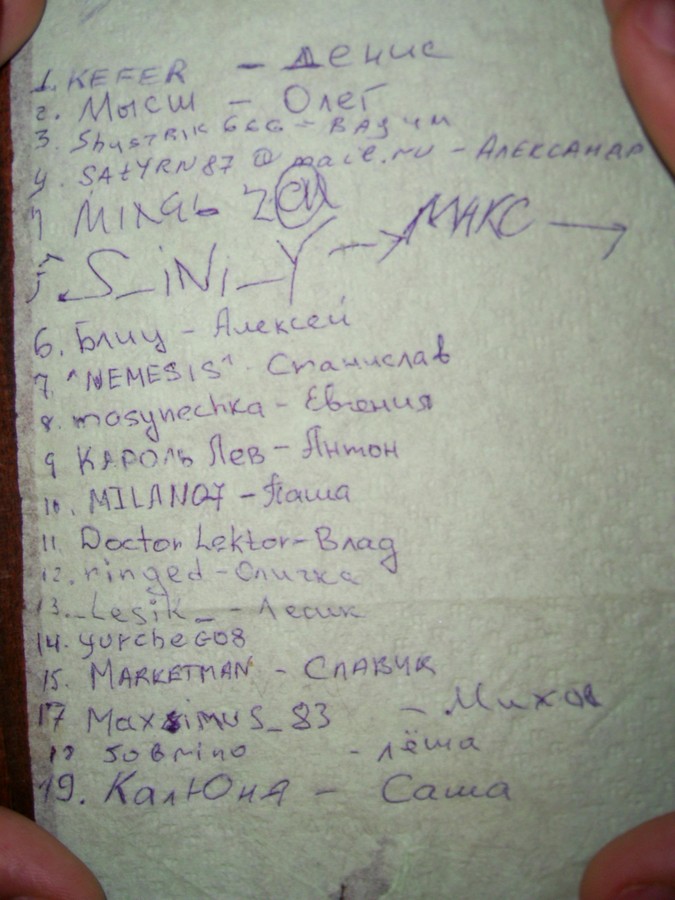 1. KEFER - Денис
2. Мысш - Олег
3. Shystrik 666 - Вадим
4. SAtYRN87@mail.ru - АЛЕКСАНДР
S_iNi_Y → МАКС →
6. Блиц - Алексей
7. "NEMESIS" - Станислав
8. mosynechka - Евгения
9 КАРОЛЬ Лев - Антон
10. MILAN07 - Паша
11. Doctor Lektor - Влад
12. ringed - Оличка
13. _Lesik_ - Лесик
14. yurcheG08
15. MARKETMAN - СЛАВИК
17 Maxximus_83 -
sobrino - лёша
19. КалЮня - Саша